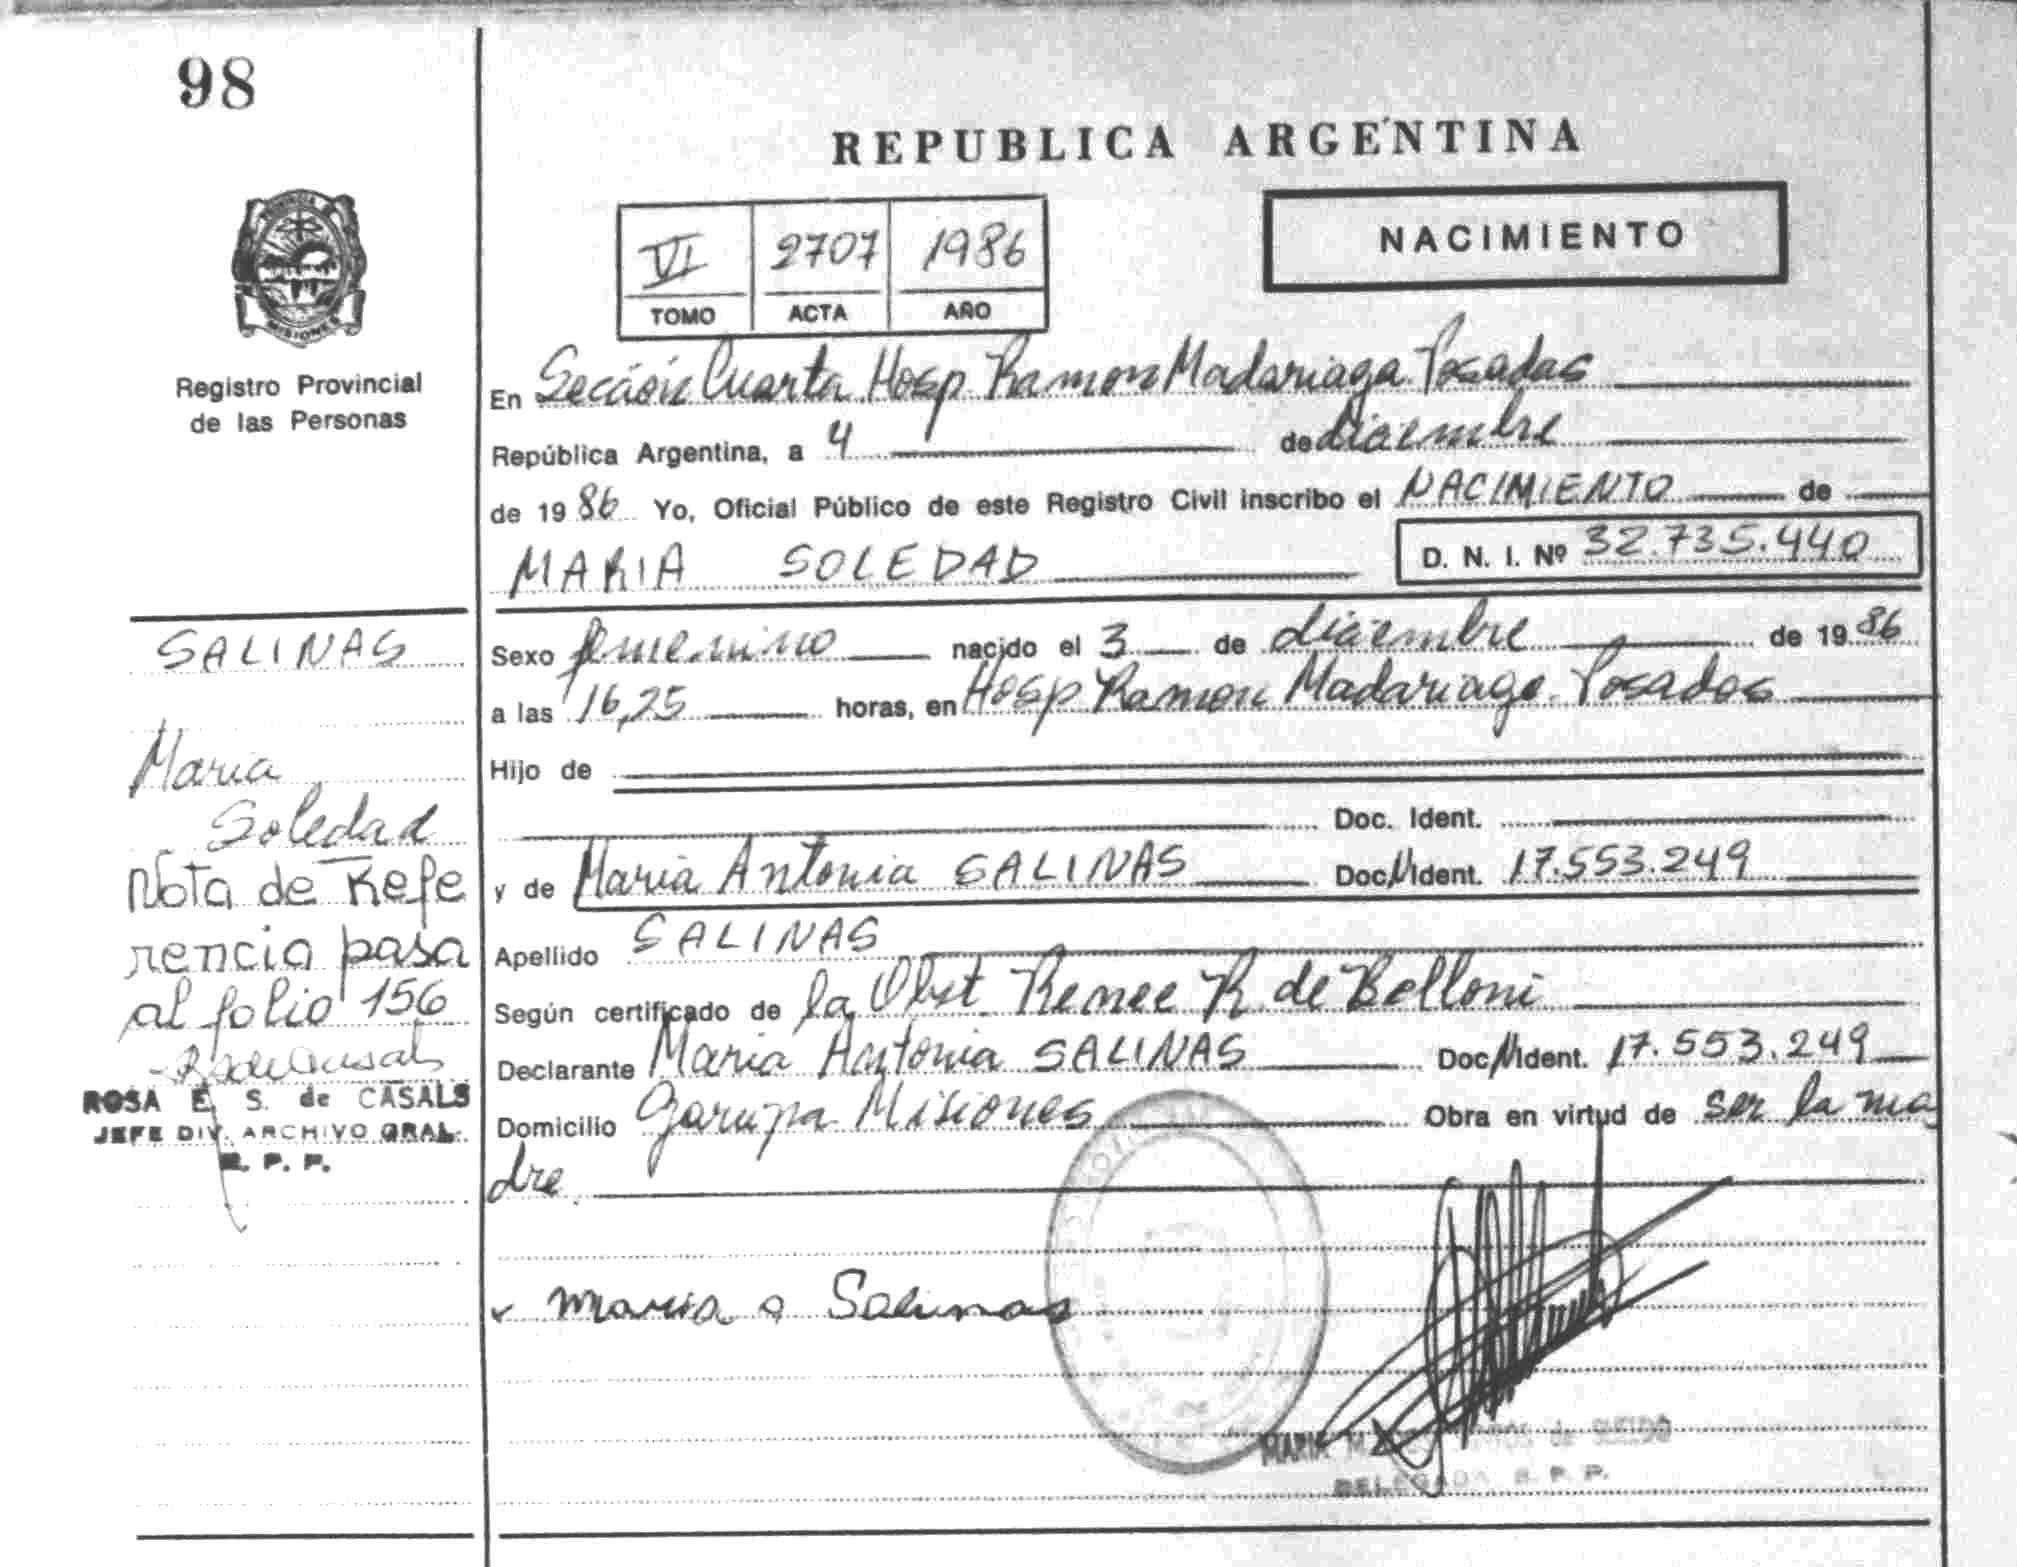 98
REPUBLICA ARGENTINA
VI 2707 1986
TOMO ACTA AÑO
NACIMIENTO
PROVINCIA
MISIONES
Registro Provincial
de las Personas
En Sección Cuarta Hosp Ramon Madariaga Posadas
República Argentina, a 4 de diciembre
de 1986 Yo, Oficial Público de este Registro Civil inscribo el NACIMIENTO de
MARIA SOLEDAD
D. N. I. Nº 32.735.440
Sexo femenino nacido el 3 de diciembre de 1986
a las 16,25 horas, en Hosp Ramon Madariaga Posadas
Hijo de
Doc. Ident.
y de Maria Antonia SALINAS Doc Ident. 17.553.249
Apellido SALINAS
Según certificado de la Obst Renee R de Belloni
Declarante Maria Antonia SALINAS Doc Ident. 17.553.249
Domicilio Garupa Misiones Obra en virtud de ser la ma
dre.
maria a Salinas
MARIA M de
DELEGADA R. P. P.
SALINAS
Maria
Soledad
Nota de Refe
rencia pasa
al folio 156
ROSA E. S. de CASALS
JEFE DIV. ARCHIVO GRAL.
R. P. P.